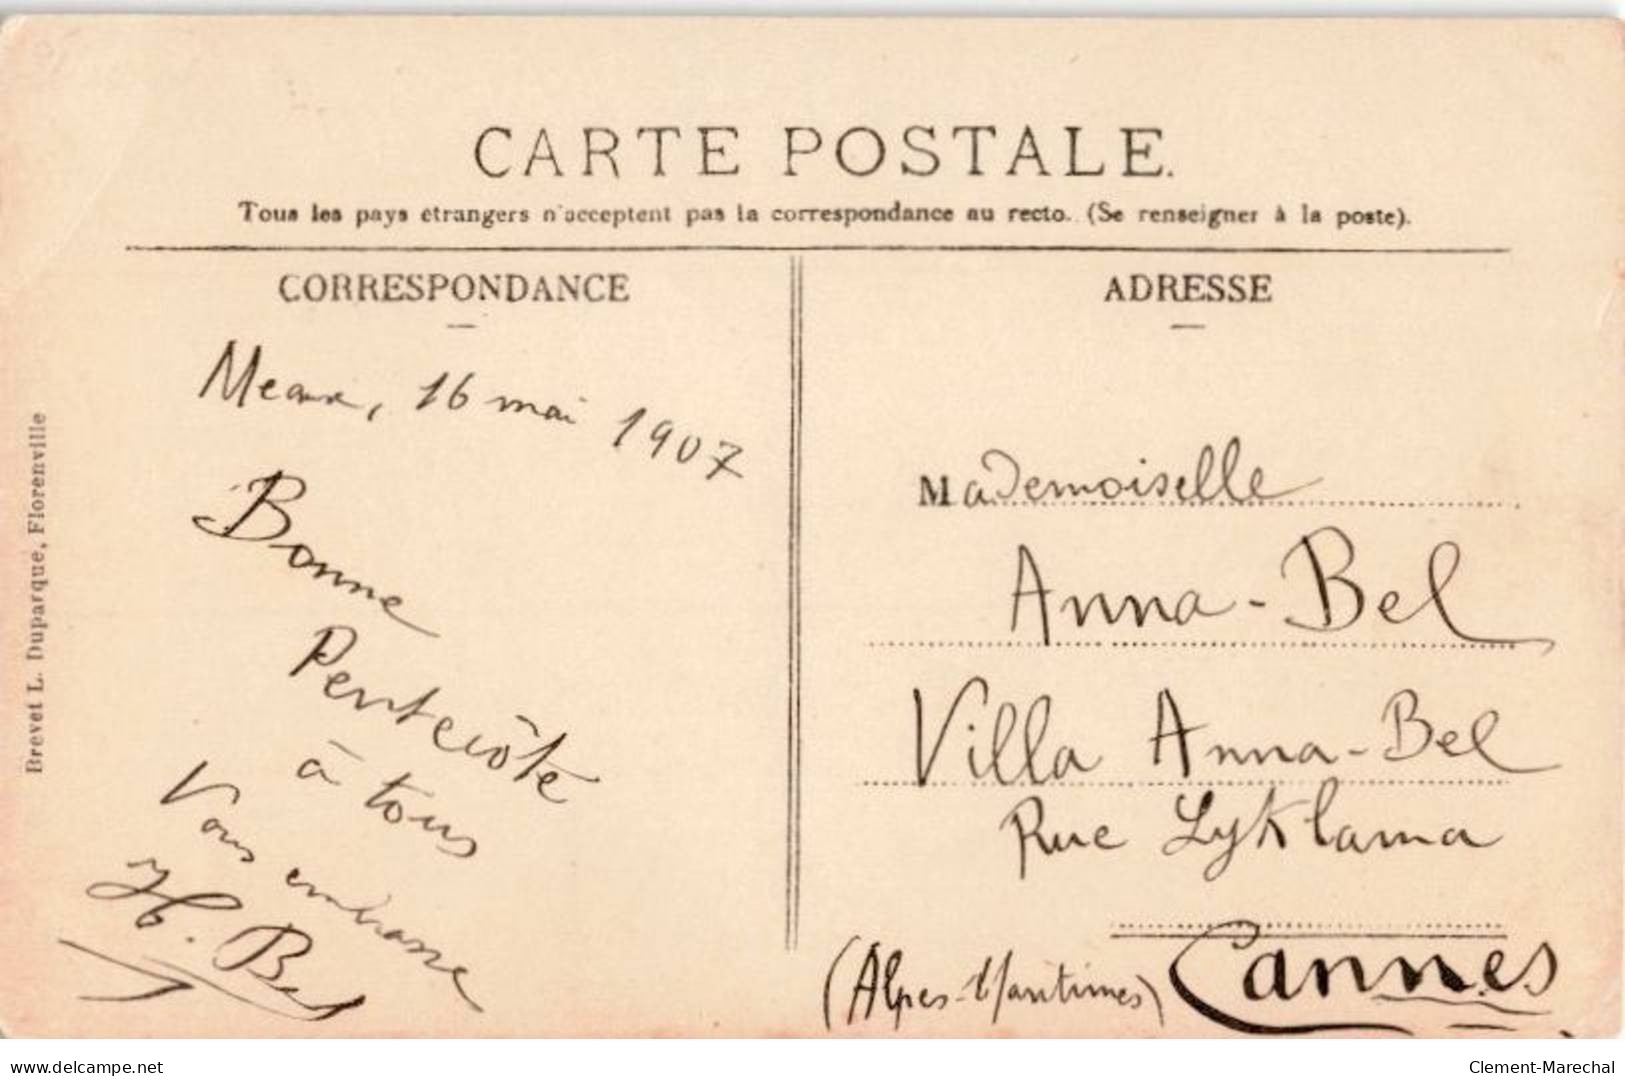 CARTE POSTALE.
Tous les pays étrangers n'acceptent pas la correspondance au recto. (Se renseigner à la poste).
CORRESPONDANCE
Meaux, 16 mai 1907
Bonne
Pentecôte
à tous
Vous embrasse
H. Bel
ADRESSE
Mademoiselle
Anna-Bel
Villa Anna-Bel
Rue Lyklama
(Alpes-Maritimes) Cannes
Brevet L. Duparque, Florenville
delcampe.net
Clement-Marechal